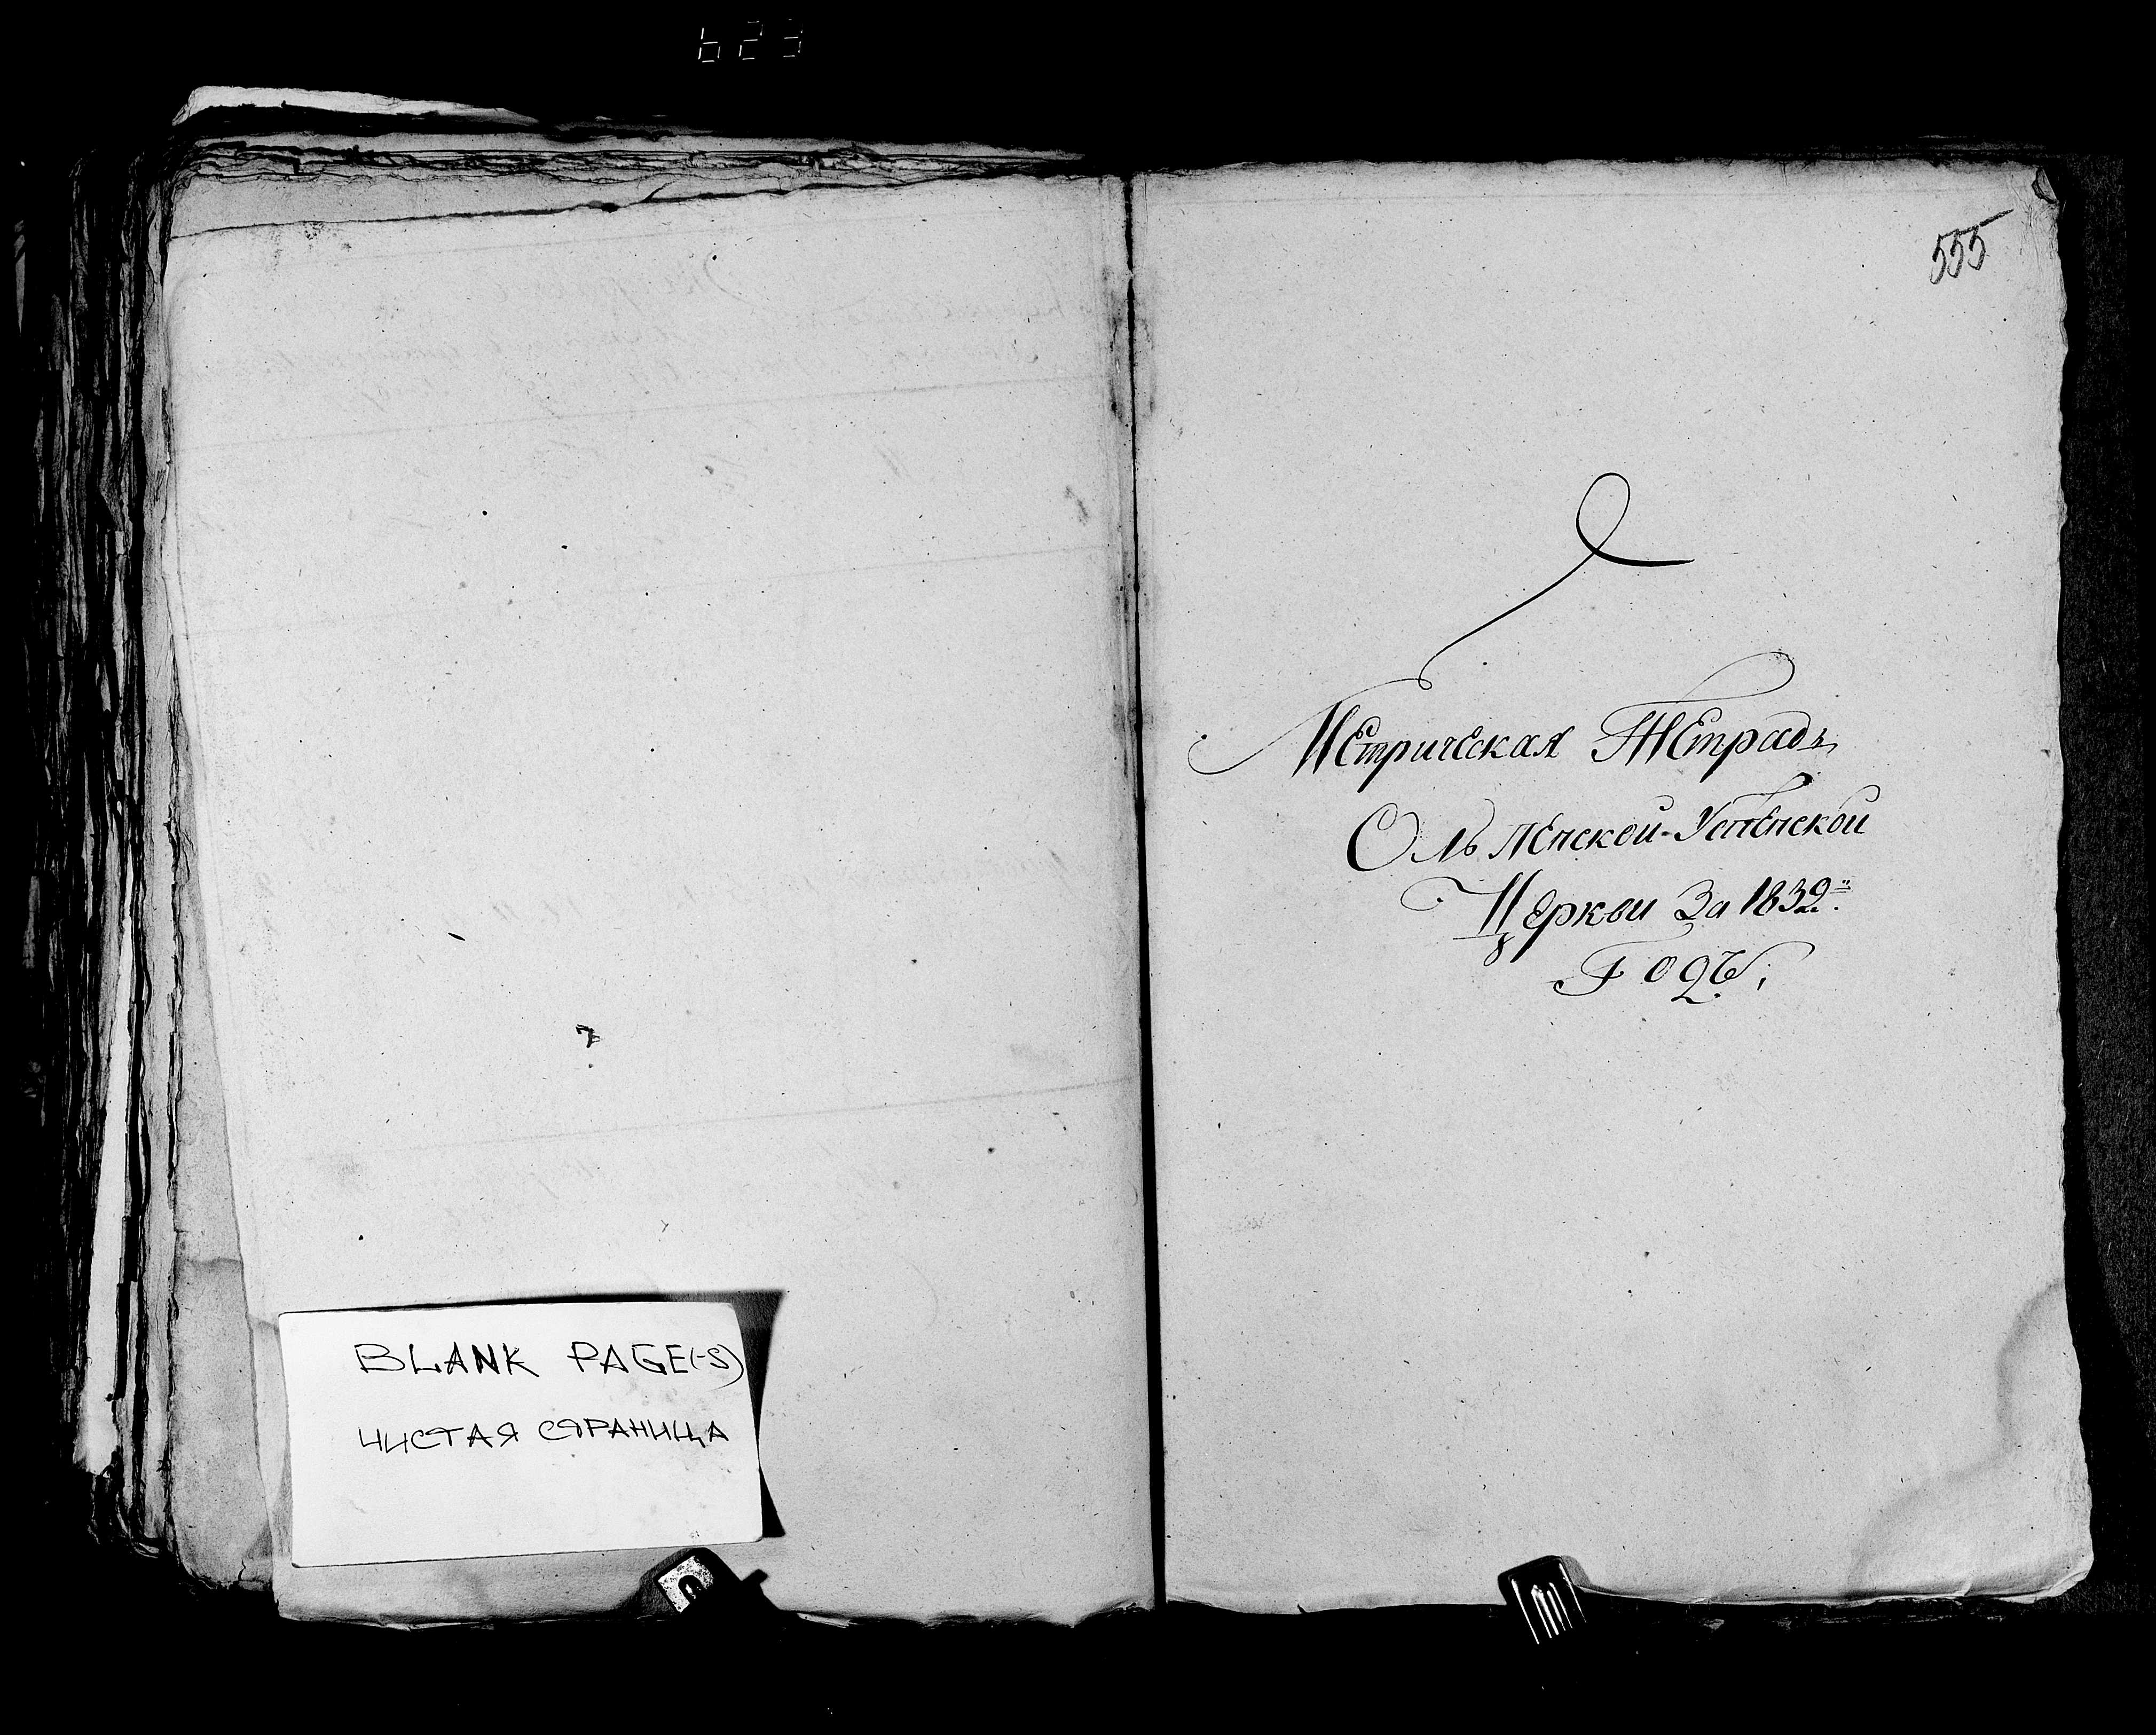 623
555
Метрическая Тетрадь
Ольпенской-Успенской
Церкви За 1832:
Годъ,
BLANK PAGE(-S)
ЧИСТАЯ СТРАНИЦА